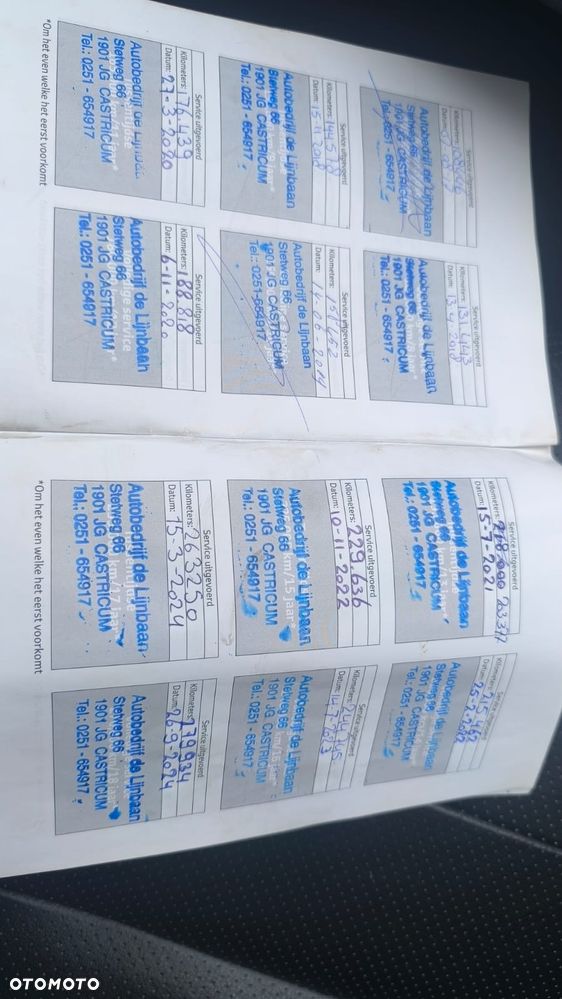 Service uitgevoerd
Kilometers:
Datum:
Autobedrijf de Lijnbaan
Stetweg 66
1901 JG CASTRICUM
Tel.: 0251 - 654917
Service uitgevoerd
Kilometers: 131.443
Datum: 13.4.2018
Autobedrijf de Lijnbaan
Stetweg 66
1901 JG CASTRICUM
Tel.: 0251 - 654917
Service uitgevoerd
Kilometers: 144578
Datum: 15.11.2018
Autobedrijf de Lijnbaan
Stetweg 66
1901 JG CASTRICUM
Tel.: 0251 - 654917
Service uitgevoerd
Kilometers:
Datum: 14-06-2019
Autobedrijf de Lijnbaan
Stetweg 66
1901 JG CASTRICUM
Tel.: 0251-654917
Service uitgevoerd
Kilometers: 176.439
Datum: 27-3-2020
Autobedrijf de Lijnbaan
Stetweg 66
1901 JG CASTRICUM
Tel.: 0251 - 654917
Service uitgevoerd
Kilometers: 188818
Datum: 6-11-2020
Autobedrijf de Lijnbaan
Stetweg 66
1901 JG CASTRICUM
Tel.: 0251 - 654917
*Om het even welke het eerst voorkomt
Service uitgevoerd
Kilometers:
Datum: 15-7-2021
Autobedrijf de Lijnbaan
Stetweg 66
1901 JG CASTRICUM
Tel.: 0251 - 654917
Service uitgevoerd
Kilometers: 215.462
Datum: 25-2-2022
Autobedrijf de Lijnbaan
Stetweg 66
1901 JG CASTRICUM
Tel.: 0251 - 654917
Service uitgevoerd
Kilometers: 229.636
Datum: 10-11-2022
Autobedrijf de Lijnbaan
Stetweg 66 km/15 jaar*
1901 JG CASTRICUM
Tel.: 0251 - 654917
Service uitgevoerd
Kilometers: 244.745
Datum: 14-7-2023
Autobedrijf de Lijnbaan
Stetweg 66
1901 JG CASTRICUM
Tel.: 0251 - 654917
Service uitgevoerd
Kilometers: 263250
Datum: 15-3-2024
Autobedrijf de Lijnbaan
Stetweg 66 km/17 jaar*
1901 JG CASTRICUM
Tel.: 0251 - 654917
Service uitgevoerd
Kilometers: 279934
Datum: 26-9-2024
Autobedrijf de Lijnbaan
Stetweg 66
1901 JG CASTRICUM
Tel.: 0251 - 654917
*Om het even welke het eerst voorkomt
OTOMOTO